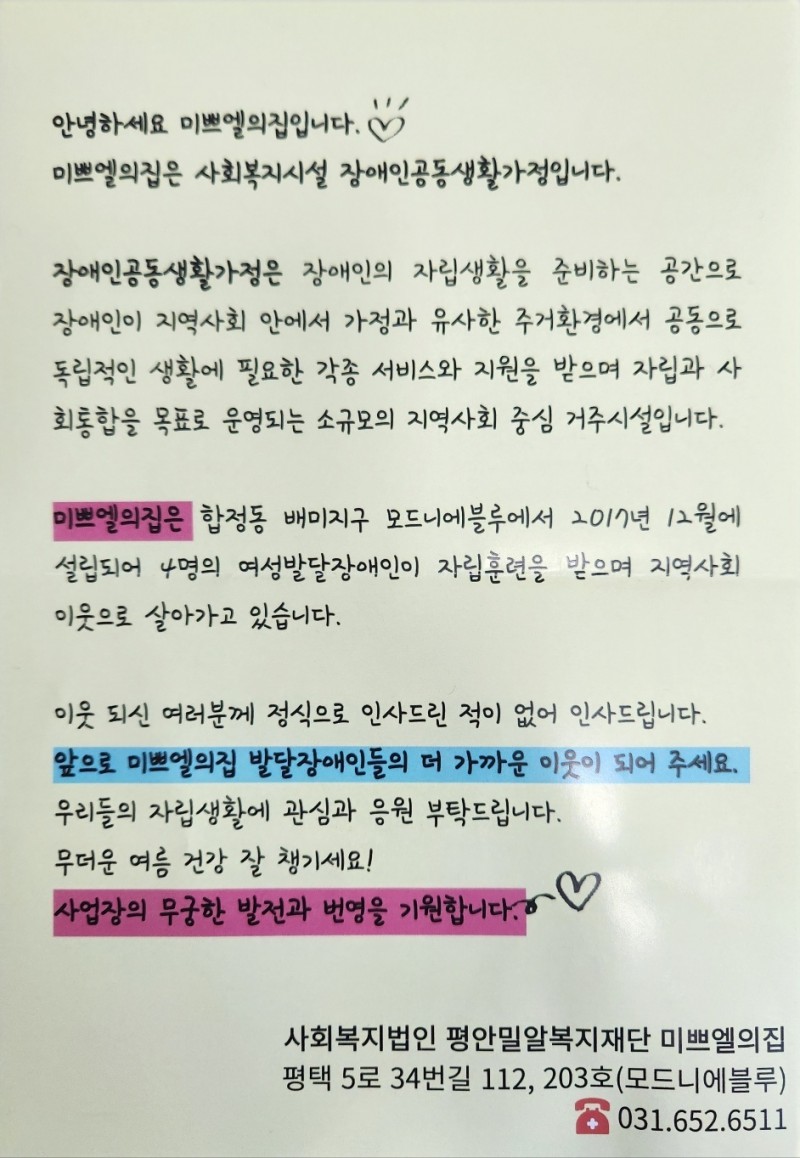 안녕하세요 미쁘엘의집입니다.
미쁘엘의집은 사회복지시설 장애인공동생활가정입니다.
장애인공동생활가정은 장애인의 자립생활을 준비하는 공간으로
장애인이 지역사회 안에서 가정과 유사한 주거환경에서 공동으로
독립적인 생활에 필요한 각종 서비스와 지원을 받으며 자립과 사
회통합을 목표로 운영되는 소규모의 지역사회 중심 거주시설입니다.
미쁘엘의집은 합정동 배미지구 모드니에블루에서 2017년 12월에
설립되어 4명의 여성발달장애인이 자립훈련을 받으며 지역사회
이웃으로 살아가고 있습니다.
이웃 되신 여러분께 정식으로 인사드린 적이 없어 인사드립니다.
앞으로 미쁘엘의집 발달장애인들의 더 가까운 이웃이 되어 주세요.
우리들의 자립생활에 관심과 응원 부탁드립니다.
무더운 여름 건강 잘 챙기세요!
사업장의 무궁한 발전과 번영을 기원합니다.
사회복지법인 평안밀알복지재단 미쁘엘의집
평택 5로 34번길 112, 203호(모드니에블루)
031.652.6511